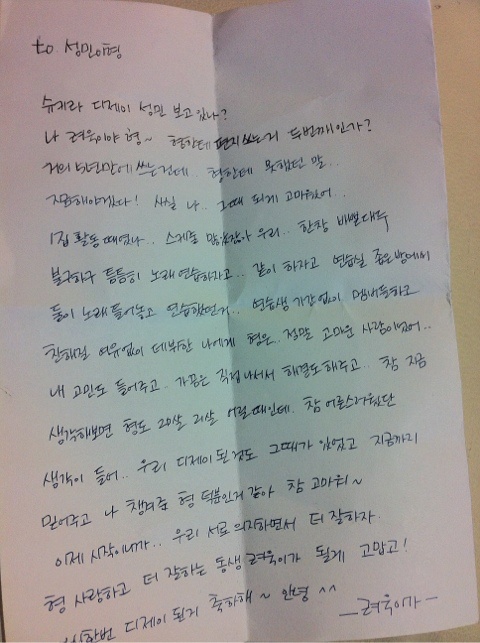 to 성민이형
슈키라 디제이 성민 보고있나?
나 려욱이야 형~ 형한테 편지쓰는거 두번째인가?
거의 5년만에 쓰는건데.. 형한테 못했던 말..
지금해야겠다! 사실 나.. 그때 되게 고마웠어..
1집 활동 때였나.. 스케줄 많았잖아 우리.. 한창 바쁠때두
불구하구 틈틈히 노래연습하자고.. 같이 하자고 연습실 좁은방에서
둘이 노래틀어놓고 연습했던거.. 연습생 기간없이 멤버들하고
친해질 여유없이 데뷔한 나에게 형은.. 정말 고마운 사람이었어..
내 고민도 들어주고.. 가끔은 직접나서서 해결도해주고.. 참 지금
생각해보면 형도 20살 21살 어릴때인데. 참 어른스러웠단
생각이 들어.. 우리 디제이된것도 그때가 있었고 지금까지
믿어주고 나 챙겨준 형 덕분인거같아 참 고마워~
이제 시작이니까.. 우리 서로 의지하면서 더 잘하자.
형 사랑하고 더 잘하는 동생 려욱이가 될게 고맙고!
다시한번 디제이 된거 축하해~ 안녕 ^^
—려욱이가—